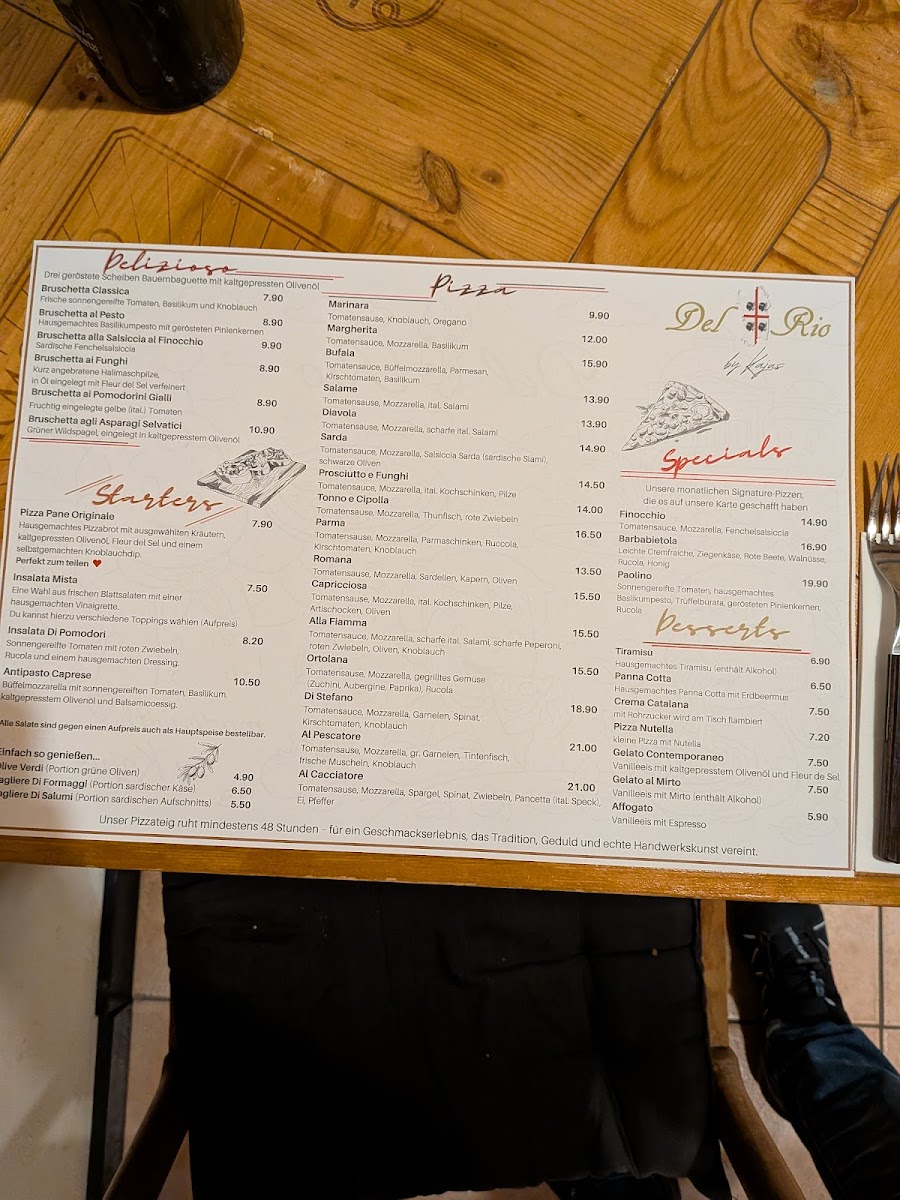 Delizioso
Drei geröstete Scheiben Bauernbaguette mit kaltgepressten Olivenöl
Bruschetta Classica 7.90
Frische sonnengereifte Tomaten, Basilikum und Knoblauch
Bruschetta al Pesto 8.90
Hausgemachtes Basilikumpesto mit gerösteten Pinienkernen
Bruschetta alla Salsiccia al Finocchio 9.90
Sardische Fenchelsalsiccia
Bruschetta ai Funghi 8.90
Kurz angebratene Hallmaschpilze,
in Öl eingelegt mit Fleur del Sel verfeinert
Bruschetta ai Pomodorini Gialli 8.90
Fruchtig eingelegte gelbe (ital.) Tomaten
Bruschetta agli Asparagi Selvatici 10.90
Grüner Wildspagel, eingelegt in kaltgepresstem Olivenöl
Starters
Pizza Pane Originale 7.90
Hausgemachtes Pizzabrot mit ausgewählten Kräutern,
kaltgepressten Olivenöl, Fleur del Sel und einem
selbstgemachten Knoblauchdip.
Perfekt zum teilen ♥
Insalata Mista 7.50
Eine Wahl aus frischen Blattsalaten mit einer
hausgemachten Vinaigrette.
Du kannst hierzu verschiedene Toppings wählen (Aufpreis)
Insalata Di Pomodori 8.20
Sonnengereifte Tomaten mit roten Zwiebeln,
Rucola und einem hausgemachten Dressing.
Antipasto Caprese 10.50
Büffelmozzarella mit sonnengereiften Tomaten, Basilikum,
kaltgepresstem Olivenöl und Balsamicoessig.
Alle Salate sind gegen einen Aufpreis auch als Hauptspeise bestellbar.
Einfach so genießen...
Olive Verdi (Portion grüne Oliven) 4.90
Tagliere Di Formaggi (Portion sardischer Käse) 6.50
Tagliere Di Salumi (Portion sardischen Aufschnitts) 5.50
Pizza
Marinara 9.90
Tomatensause, Knoblauch, Oregano
Margherita 12.00
Tomatensauce, Mozzarella, Basilikum
Bufala 15.90
Tomatensauce, Büffelmozzarella, Parmesan,
Kirschtomaten, Basilikum
Salame 13.90
Tomatensause, Mozzarella, ital. Salami
Diavola 13.90
Tomatensause, Mozzarella, scharfe ital. Salami
Sarda 14.90
Tomatensauce, Mozzarella, Salsiccia Sarda (sardische Slami),
schwarze Oliven
Prosciutto e Funghi 14.50
Tomatensauce, Mozzarella, Ital. Kochschinken, Pilze
Tonno e Cipolla 14.00
Tomatensause, Mozzarella, Thunfisch, rote Zwiebeln
Parma 16.50
Tomatensauce, Mozzarella, Parmaschinken, Ruccola,
Kirschtomaten, Knoblauch
Romana 13.50
Tomatensauce, Mozzarella, Sardellen, Kapern, Oliven
Capricciosa 15.50
Tomatensauce, Mozzarella, ital. Kochschinken, Pilze,
Artischocken, Oliven
Alla Fiamma 15.50
Tomatensauce, Mozzarella, scharfe ital. Salami, scharfe Peperoni,
roten Zwiebeln, Oliven, Knoblauch
Ortolana 15.50
Tomatensauce, Mozzarella, gegrilltes Gemüse
(Zuchini, Aubergine, Paprika), Rucola
Di Stefano 18.90
Tomatensauce, Mozzarella, Garnelen, Spinat,
Kirschtomaten, Knoblauch
Al Pescatore 21.00
Tomatensauce, Mozzarella, gr. Garnelen, Tintenfisch,
frische Muscheln, Knoblauch
Al Cacciatore 21.00
Tomatensauce, Mozzarella, Spargel, Spinat, Zwiebeln, Pancetta (ital. Speck),
Ei, Pfeffer
Del Rio
by Kajus
Specials
Unsere monatlichen Signature-Pizzen,
die es auf unsere Karte geschafft haben
Finocchio 14.90
Tomatensauce, Mozzarella, Fenchelsalsiccia
Barbabietola 16.90
Leichte Cremfraiche, Ziegenkäse, Rote Beete, Walnüsse,
Rucola, Honig
Paolino 19.90
Sonnengereifte Tomaten, hausgemachtes
Basilikumpesto, Trüffelburata, gerösteten Pinienkernen,
Rucola
Desserts
Tiramisu 6.90
Hausgemachtes Tiramisu (enthält Alkohol)
Panna Cotta 6.50
Hausgemachtes Panna Cotta mit Erdbeermus
Crema Catalana 7.50
mit Rohrzucker wird am Tisch flambiert
Pizza Nutella 7.20
kleine Pizza mit Nutella
Gelato Contemporaneo 7.50
Vanilleeis mit kaltgepresstem Olivenöl und Fleur de Sel
Gelato al Mirto 7.50
Vanilleeis mit Mirto (enthält Alkohol)
Affogato 5.90
Vanilleeis mit Espresso
Unser Pizzateig ruht mindestens 48 Stunden – für ein Geschmackserlebnis, das Tradition, Geduld und echte Handwerkskunst vereint.